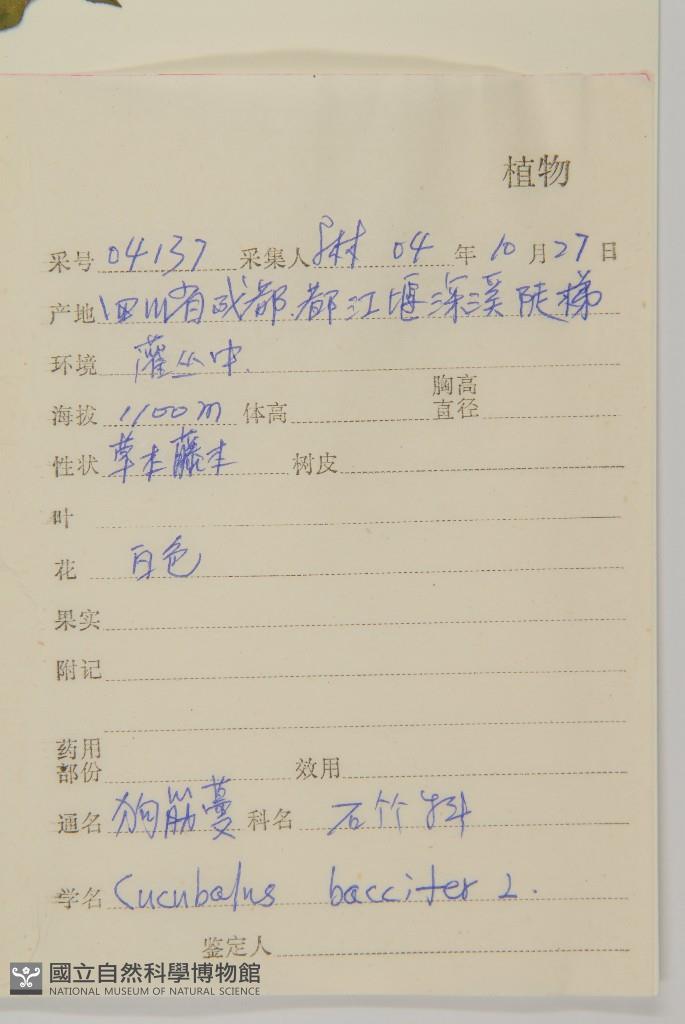 植物
采号 04137 采集人 04 年 10 月 27 日
产地 四川省成都.都江堰深溪陡梯
环境 灌丛中.
海拔 1100m 体高 胸高直径
性状 草本藤本 树皮
叶
花 白色
果实
附记
药用部份 效用
通名 狗筋蔓 科名 石竹科
学名 Cucubalus baccifer L.
鉴定人
國立自然科學博物館
NATIONAL MUSEUM OF NATURAL SCIENCE